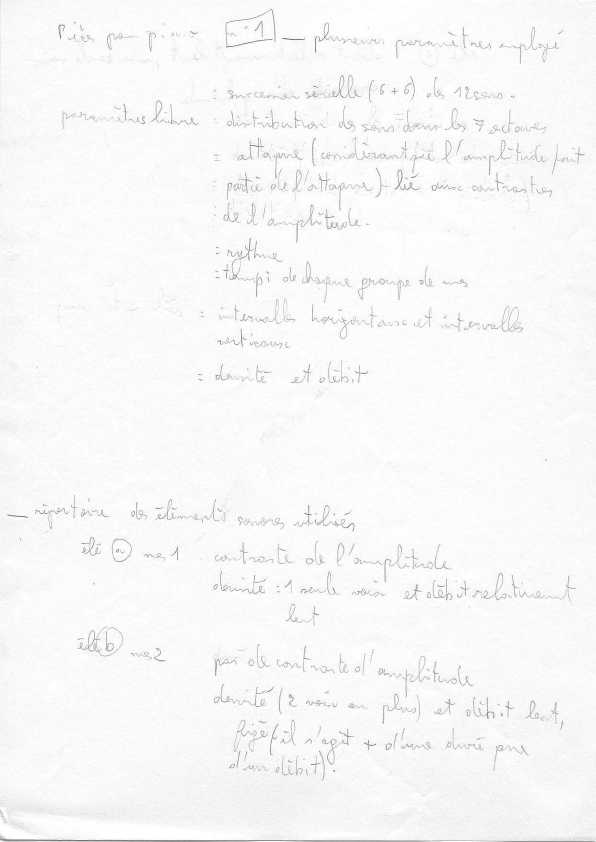 Pièce pour piano n°1 — plusieurs paramètres employé
= succession sérielle (6+6) des 12 sons.
paramètres libre = distribution des sons dans les 7 octaves
= attaque (considérant que l'amplitude fait
partie de l'attaque) lié aux contrastres
de l'amplitude.
= rythme
= tempi de chaque groupe de mes
= intervalles horizontaux et intervalles
verticaux
= densité et débit
— répertoire des éléments sonores utilisés
élé a mes 1 contraste de l'amplitude
densité : 1 seule voix et débit relativement
lent
élé b mes 2 pas de contraste d'amplitude
densité (2 voix en plus) et débit lent,
figé (il s'agit + d'une durée que
d'un débit).